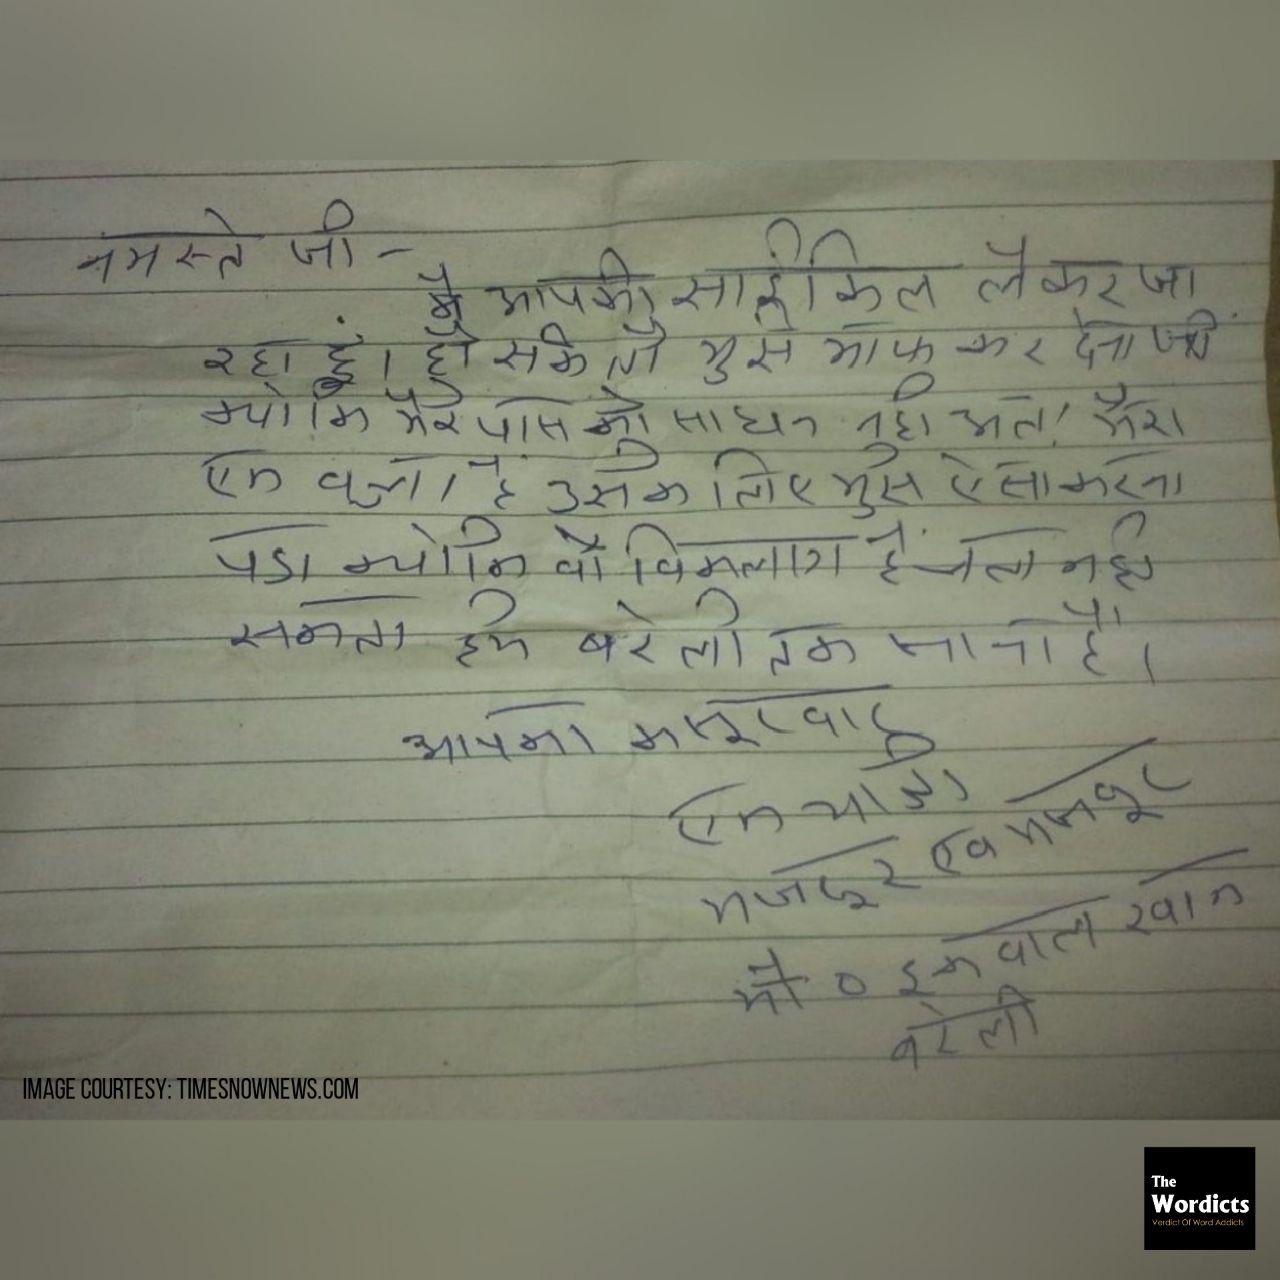 नमस्ते जी -
मै आपकी साईकिल लेकर जा
रहा हूं। हो सके तो मुझे माफ कर देना जी
क्योकि मेरे पास को साधन नही मेरा
एक बच्चा है उसके लिए मुझे ऐसा करना
पडा क्योकि वो विकलांग है चल नही
सकता हमे बरेली तक जाना है।
आपका कसूरवार
एक यात्री
मजदूर एव मजबूर
मो० इकबाल खान
बरेली
IMAGE COURTESY: TIMESNOWNEWS.COM
The
Wordicts
Verdict Of Word Addicts